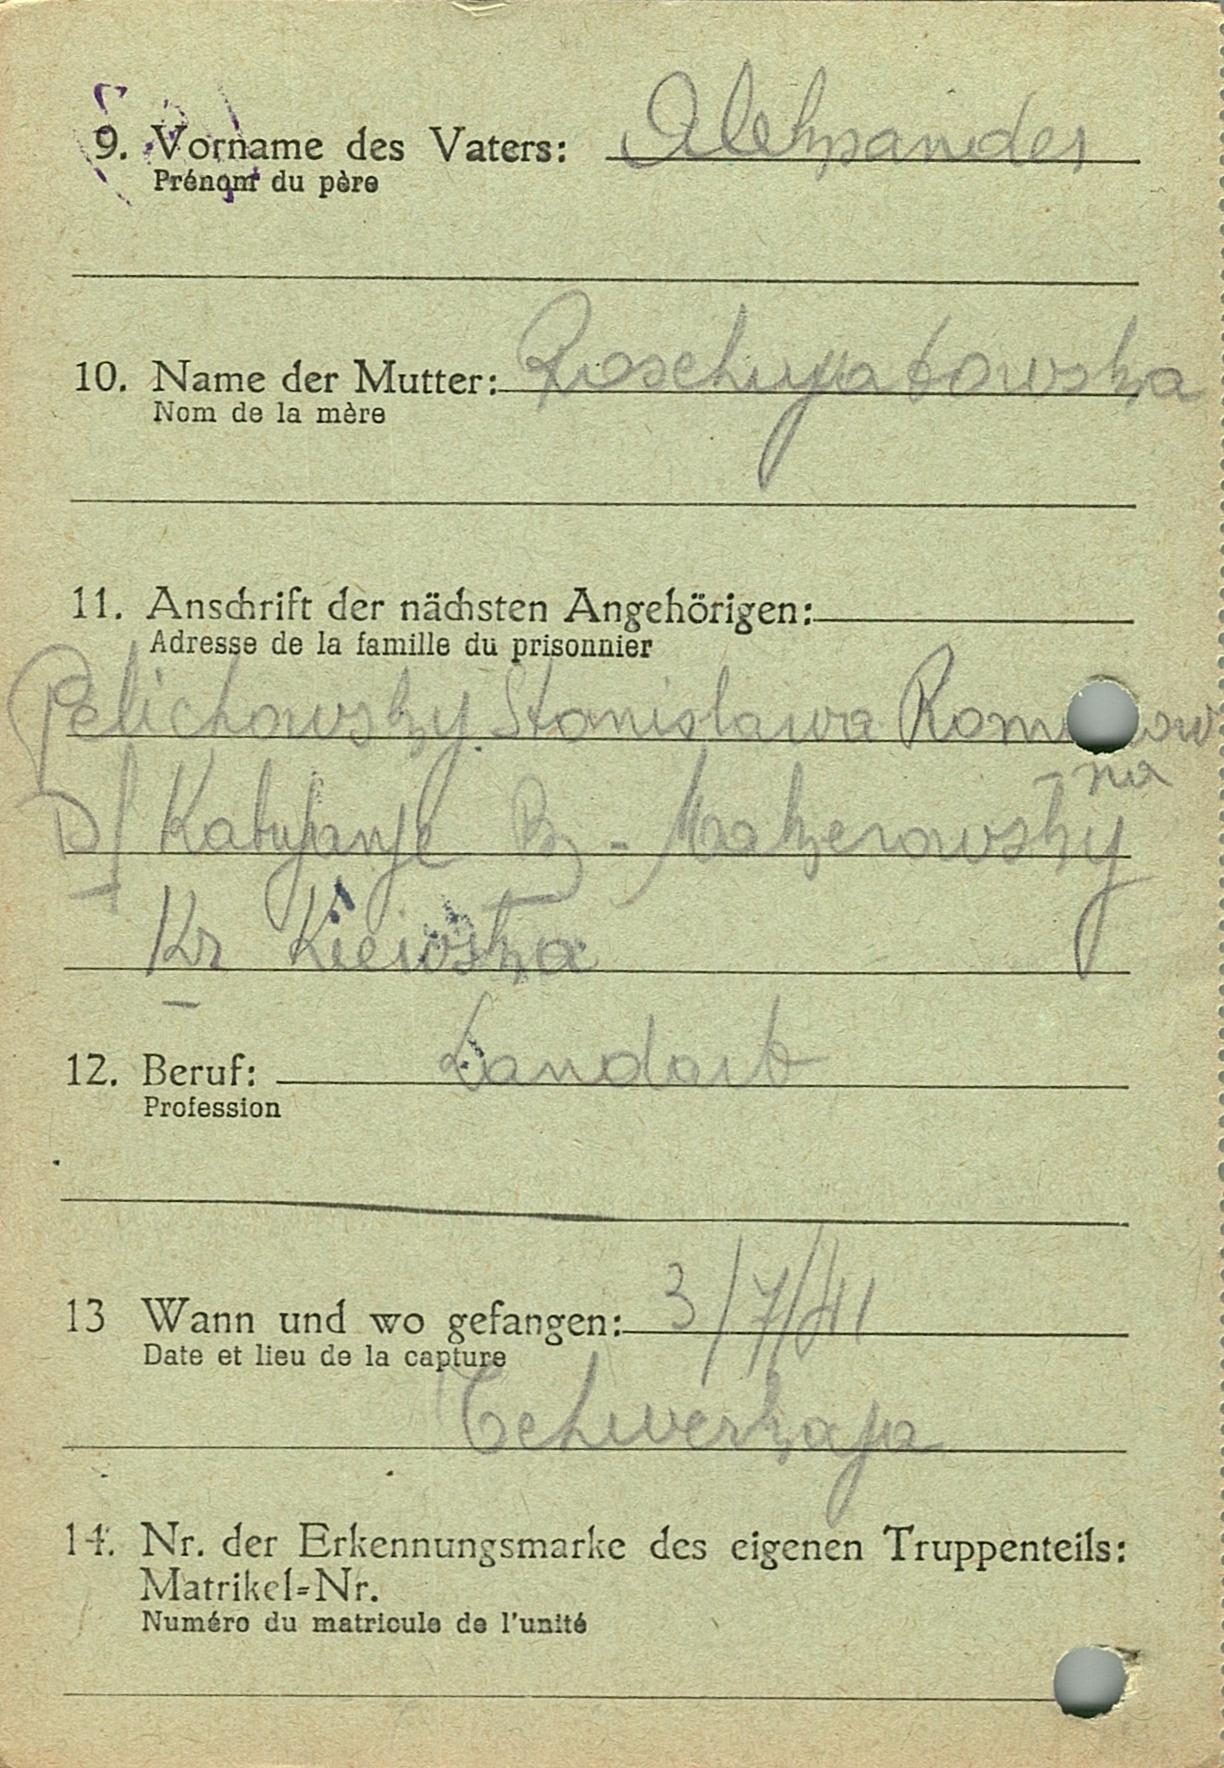 9. Vorname des Vaters: Aleksander
Prénom du père
10. Name der Mutter: Roschyatowska
Nom de la mère
11. Anschrift der nächsten Angehörigen:
Adresse de la famille du prisonnier
Pelichowsky Stanislawa
D/
Kr Kiewska
12. Beruf: Landarb
Profession
13 Wann und wo gefangen: 3/7/41
Date et lieu de la capture
14. Nr. der Erkennungsmarke des eigenen Truppenteils:
Matrikel=Nr.
Numéro du matricule de l'unité